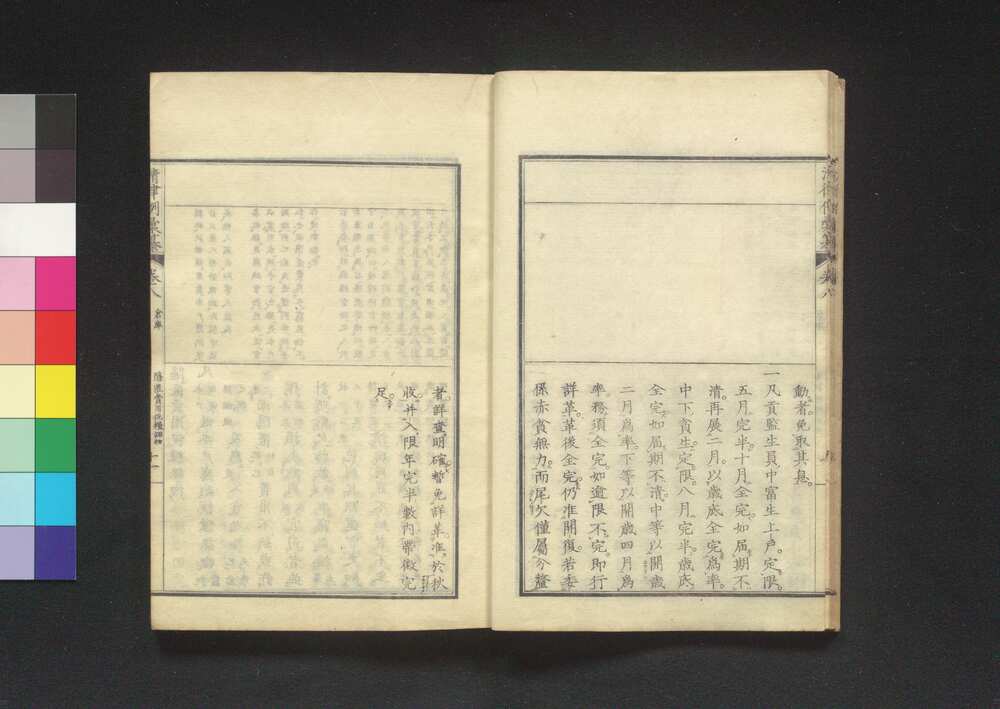 動者免取其息
一凡貢監生員中富生上戶定限
五月完半十月全完如屆期不
清再展二月以歲底全完爲率
中下貢生定限八月完半歲底
全完如屆期不清中等以開歲
二月爲率下等以開歲四月爲
率務須全完如逾限不完即行
詳革革後全完仍准開復若委
係赤貧無力而尾欠僅屬分釐
者詳查明確暫免詳革准於秋
收并入限年完半數內帶徵完
足
清律例彙纂
卷八
倉庫
隱匿費用稅糧課物
十一